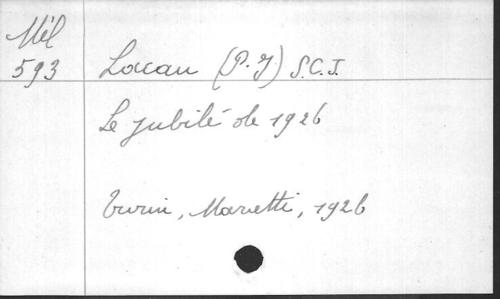 Mél
593 Lacau (P. J) S.C.J.
Le jubilé de 1926
Turin, Marietti, 1926